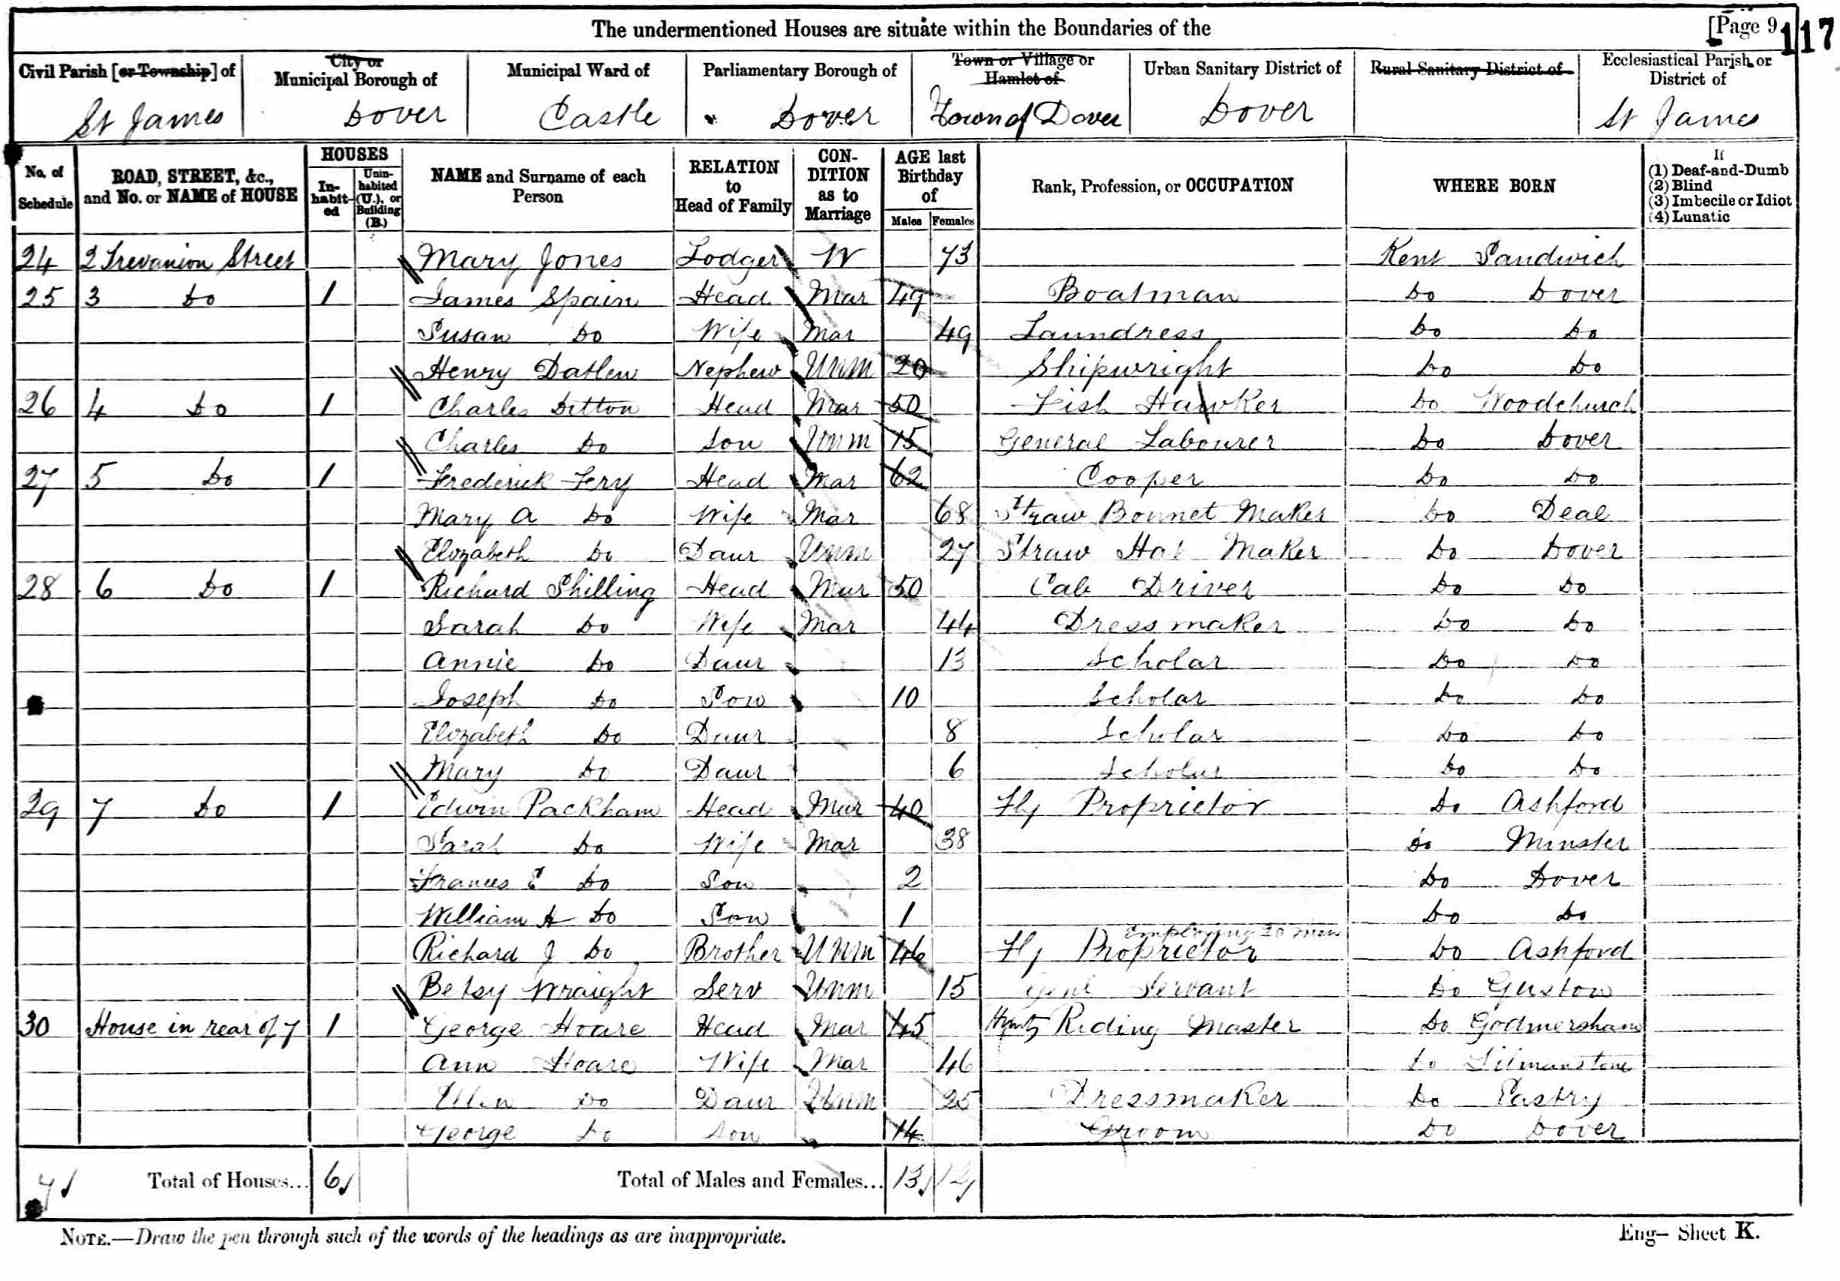 The undermentioned Houses are situate within the Boundaries of the [Page 9 117
Civil Parish [or Township] of City or Municipal Borough of Municipal Ward of Parliamentary Borough of Town or Village or Hamlet of Urban Sanitary District of Rural Sanitary District of Ecclesiastical Parish or District of
St James Dover Castle Dover Town of Dover Dover St James
No. of Schedule ROAD, STREET, &c., and No. or NAME of HOUSE HOUSES Inhabited Uninhabited (U.), or Building (B.) NAME and Surname of each Person RELATION to Head of Family CONDITION as to Marriage AGE last Birthday of Males Females Rank, Profession, or OCCUPATION WHERE BORN If (1) Deaf-and-Dumb (2) Blind (3) Imbecile or Idiot (4) Lunatic
24 2 Trevanion Street Mary Jones Lodger W 73 Kent Sandwich
25 3 Do 1 James Spain Head Mar 49 Boatman Do Dover
Susan Do Wife Mar 49 Laundress Do Do
Henry Datlen Nephew Unm 20 Shipwright Do Do
26 4 Do 1 Charles Ditton Head Mar 50 Fish Hawker Do Woodchurch
Charles Do Son Unm 15 General Labourer Do Dover
27 5 Do 1 Frederick Fery Head Mar 62 Cooper Do Do
Mary A Do Wife Mar 68 Straw Bonnet Maker Do Deal
Elizabeth Do Daur Unm 27 Straw Hat Maker Do Dover
28 6 Do 1 Richard Shilling Head Mar 50 Cab Driver Do Do
Sarah Do Wife Mar 44 Dressmaker Do Do
Annie Do Daur 13 Scholar Do Do
Joseph Do Son 10 Scholar Do Do
Elizabeth Do Daur 8 Scholar Do Do
Mary Do Daur 6 Scholar Do Do
29 7 Do 1 Edwin Packham Head Mar 40 Fly Proprietor Do Ashford
Sarah Do Wife Mar 38 Do Minster
Frances E Do Son 2 Do Dover
William H Do Son 1 Do Do
Richard J Do Brother Unm 46 Fly Proprietor employing 20 men Do Ashford
Betsy Wraight Serv Unm 15 Genl Servant Do Guston
30 House in rear of 7 1 George Hoare Head Mar 45 Riding Master Do Godmersham
Ann Hoare Wife Mar 46 Do Tilmanstone
Ellen Do Daur Unm 25 Dressmaker Do Eastry
George Do Son 14 Groom Do Dover
Total of Houses... 6 Total of Males and Females... 13 12
NOTE.—Draw the pen through such of the words of the headings as are inappropriate. Eng– Sheet K.